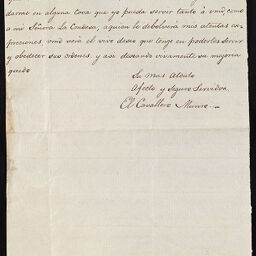 darme en alguna Cosa que yo pueda servir tanto à vmd, como
a mi Señora La Condesa, aquien le debolverá mis atentas es-
preciones, vmd verá el vivo deseo que tengo en poderlos Servir
y obedecer sus ordenes, y aca deseando vivamente su mejoria
quedo
Su mas Atento
Afecto y Seguro Servidor
El Cavallero Munro